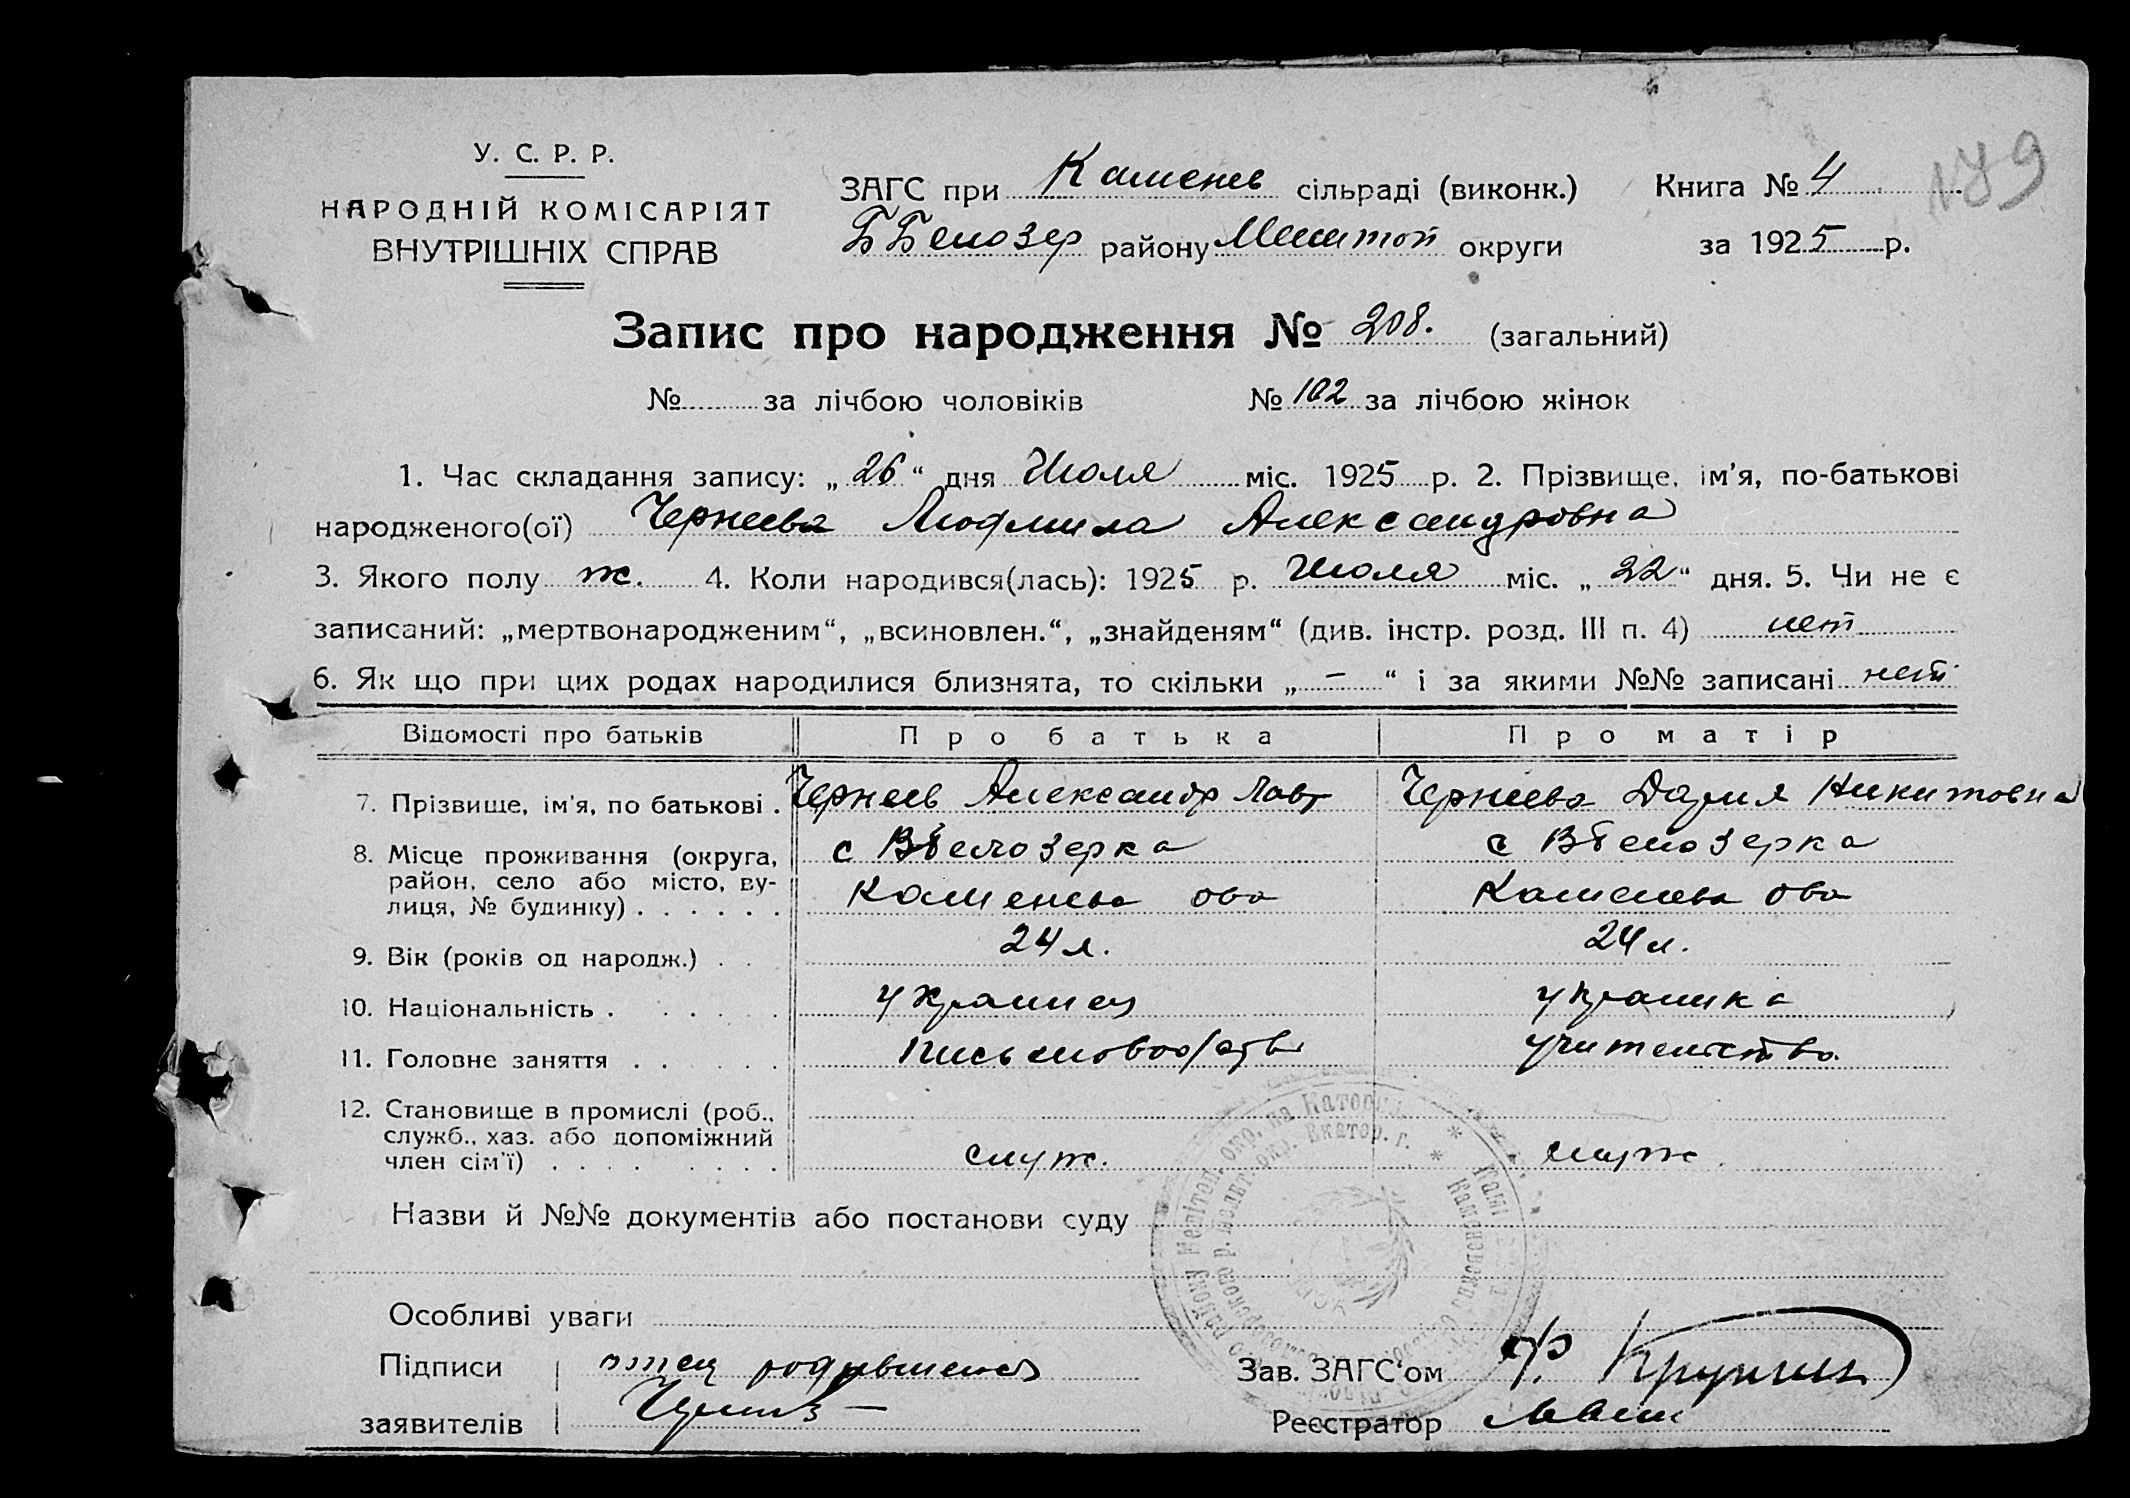 У. С. Р. Р.
НАРОДНІЙ КОМІСАРІЯТ
ВНУТРІШНІХ СПРАВ
ЗАГС при Каменев сільраді (виконк.) Книга № 4
ББелозер району Мелитоп округи за 1925 р.
Запис про народження № 208. (загальний)
№ за лічбою чоловіків № 102 за лічбою жінок
1. Час складання запису: „26“ дня Июля міс. 1925 р. 2. Прізвище, ім'я, по-батькові
народженого(ої) Чернеева Людмила Александровна
3. Якого полу ж. 4. Коли народився(лась): 1925 р. Июля міс. „22“ дня. 5. Чи не є
записаний: „мертвонародженим“, „всиновлен.“, „знайденям“ (див. інстр. розд. III п. 4) нет
6. Як що при цих родах народилися близнята, то скільки „–“ і за якими №№ записані нет
Відомості про батьків Про батька Про матір
7. Прізвище, ім'я, по батькові . Чернеев Александр Лавр Чернеева Дария Никитовна
8. Місце проживання (округа, район, село або місто, вулиця, № будинку) . . . . . . с ВБелозерка с ВБелозерка
Каменева ова Каменева ова
9. Вік (років од народж.) . . 24 л. 24 л.
10. Національність . . . . . . украинец украинка
11. Головне заняття . . . . . . учительство
12. Становище в промислі (роб., служб., хаз. або допоміжний член сім'ї) . . . . . . . . служ. служ.
Назви й №№ документів або постанови суду
Особливі уваги
Підписи отец родившейся Зав. ЗАГС'ом
заявителів Реєстратор